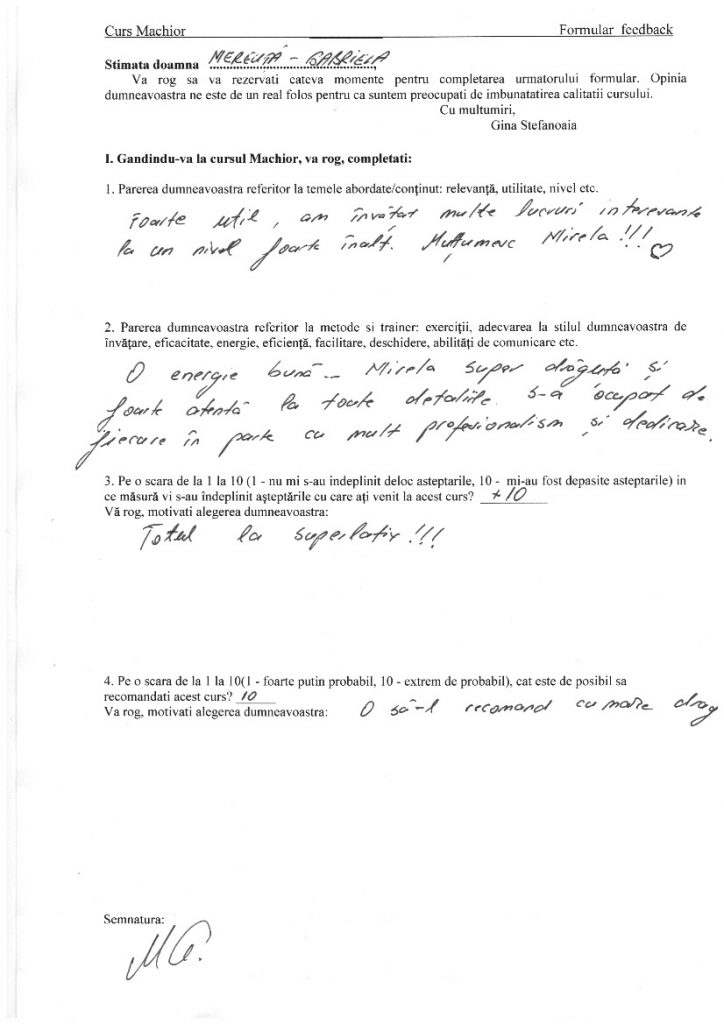 Curs Machior Formular feedback
Stimata doamna MEREUȚĂ - GABRIELA
Va rog sa va rezervati cateva momente pentru completarea urmatorului formular. Opinia
dumneavoastra ne este de un real folos pentru ca suntem preocupati de imbunatatirea calitatii cursului.
Cu multumiri,
Gina Stefanoaia
I. Gandindu-va la cursul Machior, va rog, completati:
1. Parerea dumneavoastra referitor la temele abordate/conținut: relevanță, utilitate, nivel etc.
Foarte util, am învățat multe lucruri interesante
la un nivel foarte înalt. Mulțumesc Mirela!!! ♡
2. Parerea dumneavoastra referitor la metode si trainer: exerciții, adecvarea la stilul dumneavoastra de
învățare, eficacitate, energie, eficiență, facilitare, deschidere, abilități de comunicare etc.
O energie bună... Mirela super drăguță și
foarte atentă la toate detaliile. S-a ocupat de
fiecare în parte cu mult profesionalism și dedicare.
3. Pe o scara de la 1 la 10 (1 - nu mi s-au indeplinit deloc asteptarile, 10 - mi-au fost depasite asteptarile) in
ce măsură vi s-au îndeplinit așteptările cu care ați venit la acest curs? +10
Vă rog, motivati alegerea dumneavoastra:
Totul la superlativ!!!
4. Pe o scara de la 1 la 10(1 - foarte putin probabil, 10 - extrem de probabil), cat este de posibil sa
recomandati acest curs? 10
Va rog, motivati alegerea dumneavoastra: O să-l recomand cu mare drag
Semnatura:
MG.